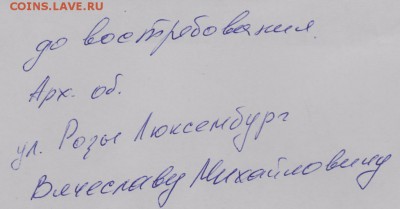 COINS.LAVE.RU
до востребования.
Арх. об.
ул. Розы Люксембург
Вячеславу Михайловичу